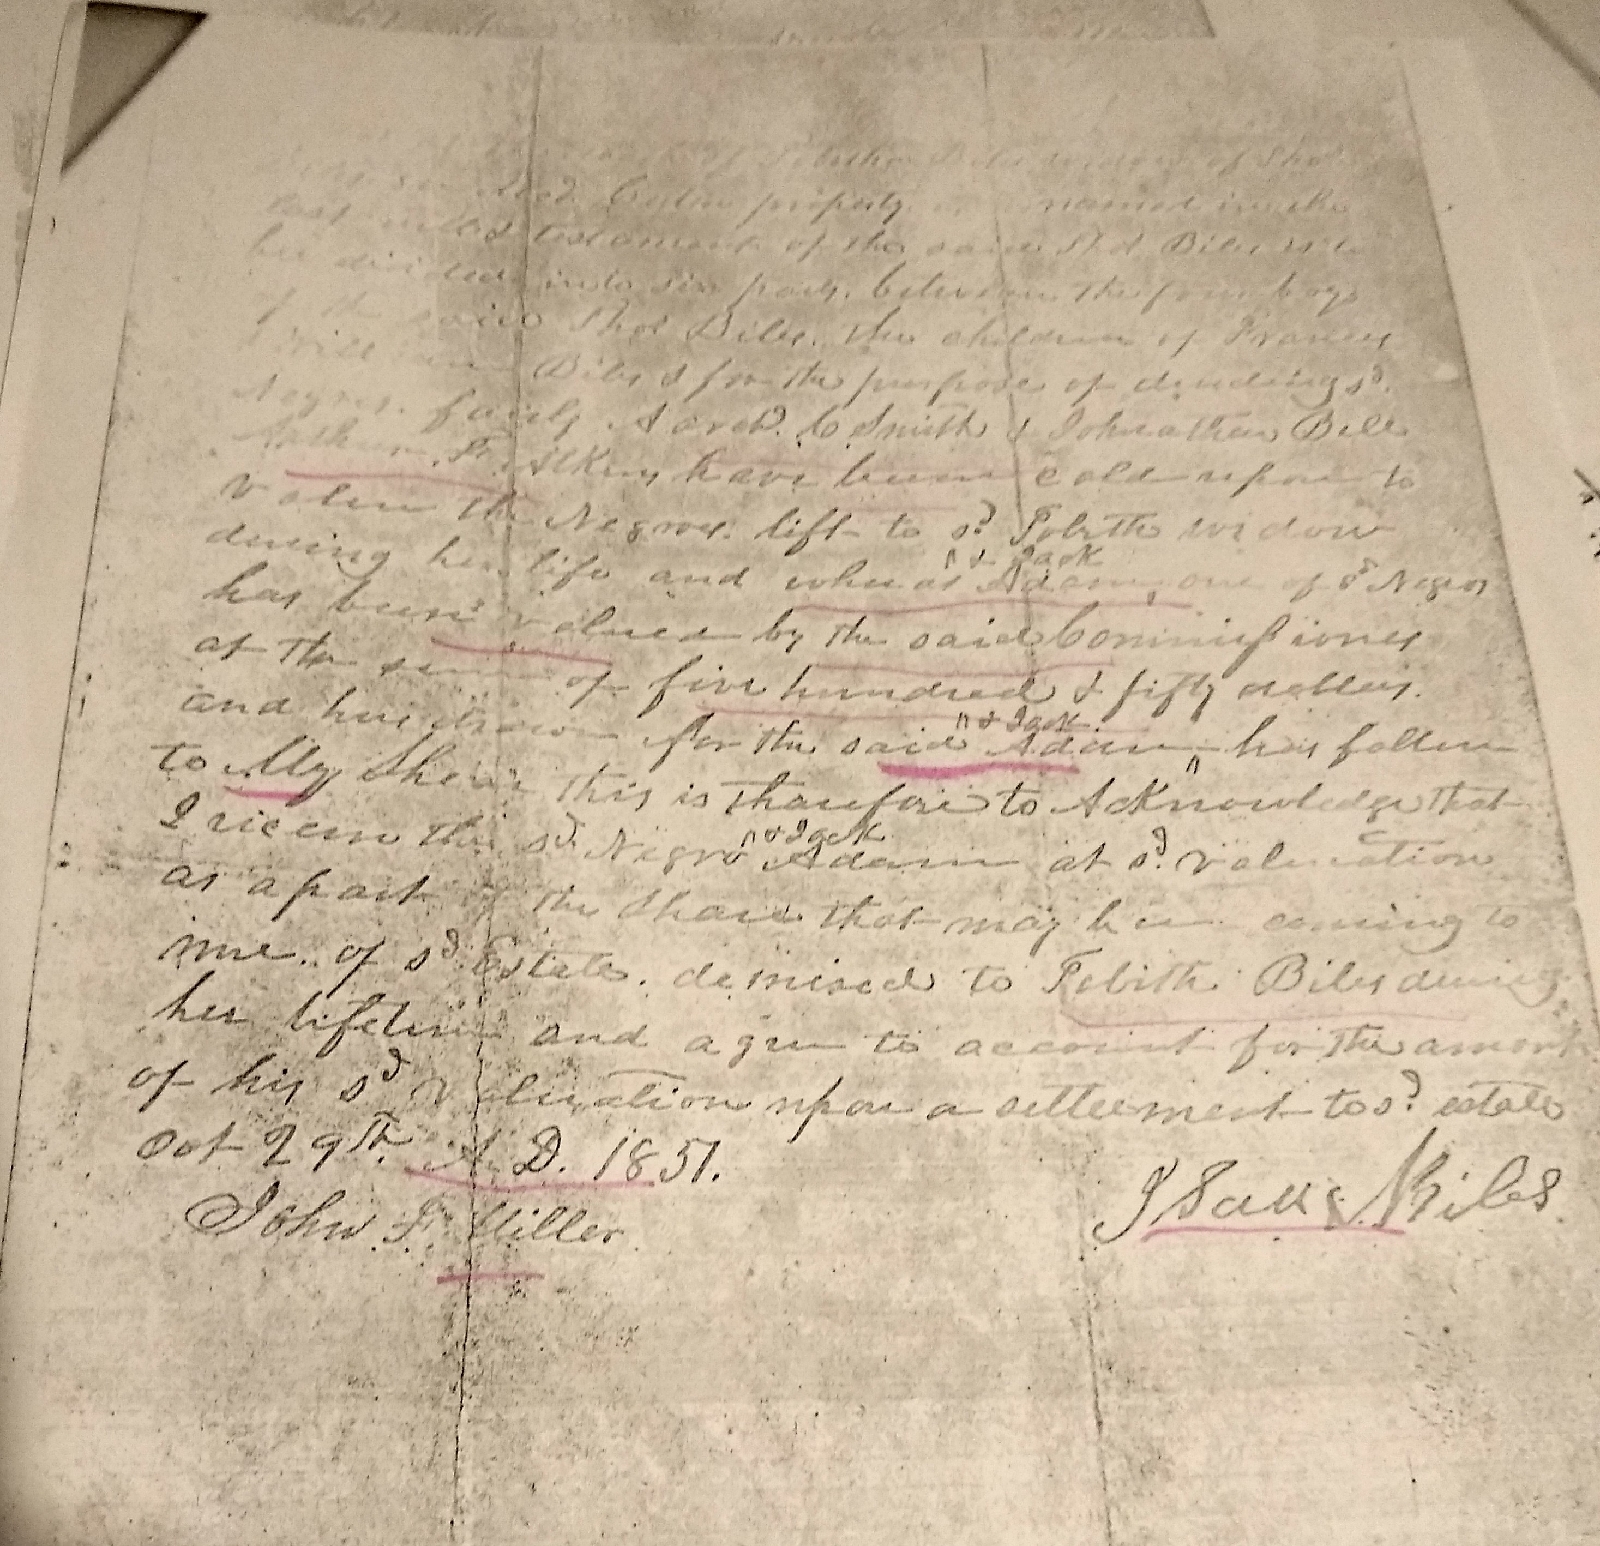 of Tabitha Biles widow of Thos
Decd. Certen property named in the
last will & testament of the said Thos Biles is to
be divided into six parts, between the four boys
of the said Thos Biles. the children of Frances
Biles & for the purpose of deviding sd.
Negroes fairly Aarod. C Smith & Johnathan Bell
F. Atkins have been cald upon to
value the Negroes left to sd Tobith widow
during her life and wheras Adam, one of sd Negros
& Jack
has been valued by the said Commissiones
at the sum of five hundred & fifty dollers.
and has drawn for the said Adam has fallen
& Jack
to My Share this is tharefore to Acknowledge that
I riceive the sd. Negro Adam at sd. valuation
& Jack
as a part of the Share that may be coming to
me. of sd Estate. demised to Tebith Biles during
her lifetime and agree to account for the amount
of his sd valuation upon a settlement to sd. estate
Oct 29th. A. D. 1851.
John F. Miller
Isaac Biles